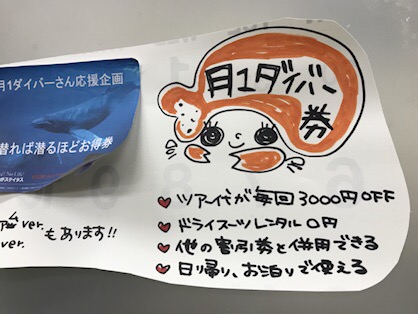 月1ダイバーさん応援企画
潜れば潜るほどお得券
月1ダイバー
券
♥ ツアー代が毎回3000円OFF
♥ ドライスーツレンタル0円
♥ 他の割引券と併用できる
♥ 日帰り、お泊りで使える
ver.
ver. もあります!!